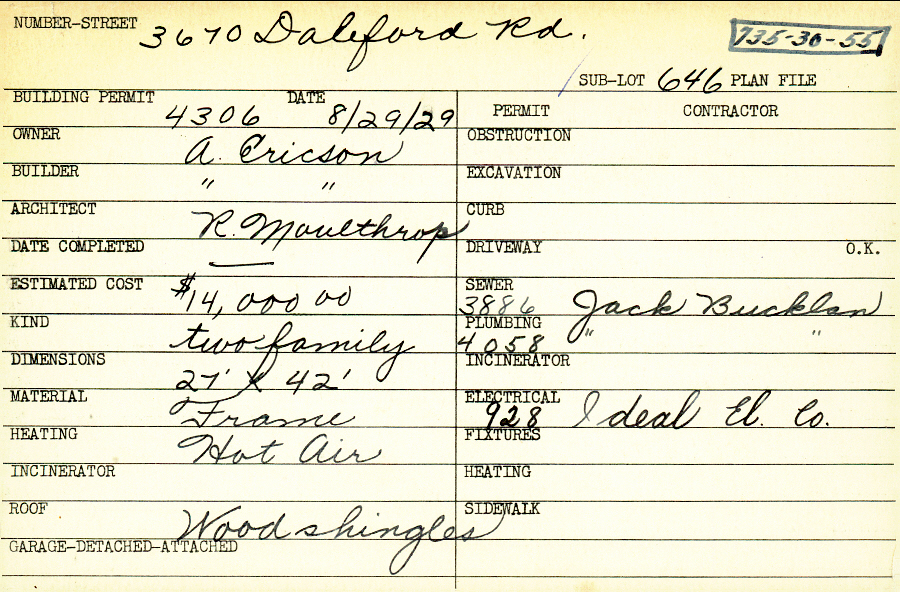 NUMBER-STREET 3670 Daleford Rd. 735-30-55
SUB-LOT 646 PLAN FILE
BUILDING PERMIT 4306 DATE 8/29/29
OWNER A. Ericson
BUILDER " "
ARCHITECT R. Moulthrop
DATE COMPLETED —
ESTIMATED COST $14,000 00
KIND two family
DIMENSIONS 27' X 42'
MATERIAL Frame
HEATING Hot Air
INCINERATOR
ROOF Wood shingles
GARAGE-DETACHED-ATTACHED
PERMIT CONTRACTOR
OBSTRUCTION
EXCAVATION
CURB
DRIVEWAY O.K.
SEWER 3886 Jack Bucklan
PLUMBING 4058 " "
INCINERATOR
ELECTRICAL 928 Ideal El. Co.
FIXTURES
HEATING
SIDEWALK